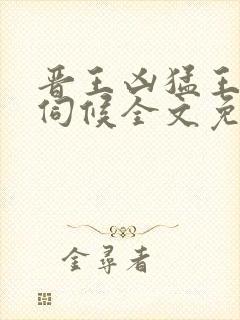 晋王凶猛王
伺候全文免
金尋者